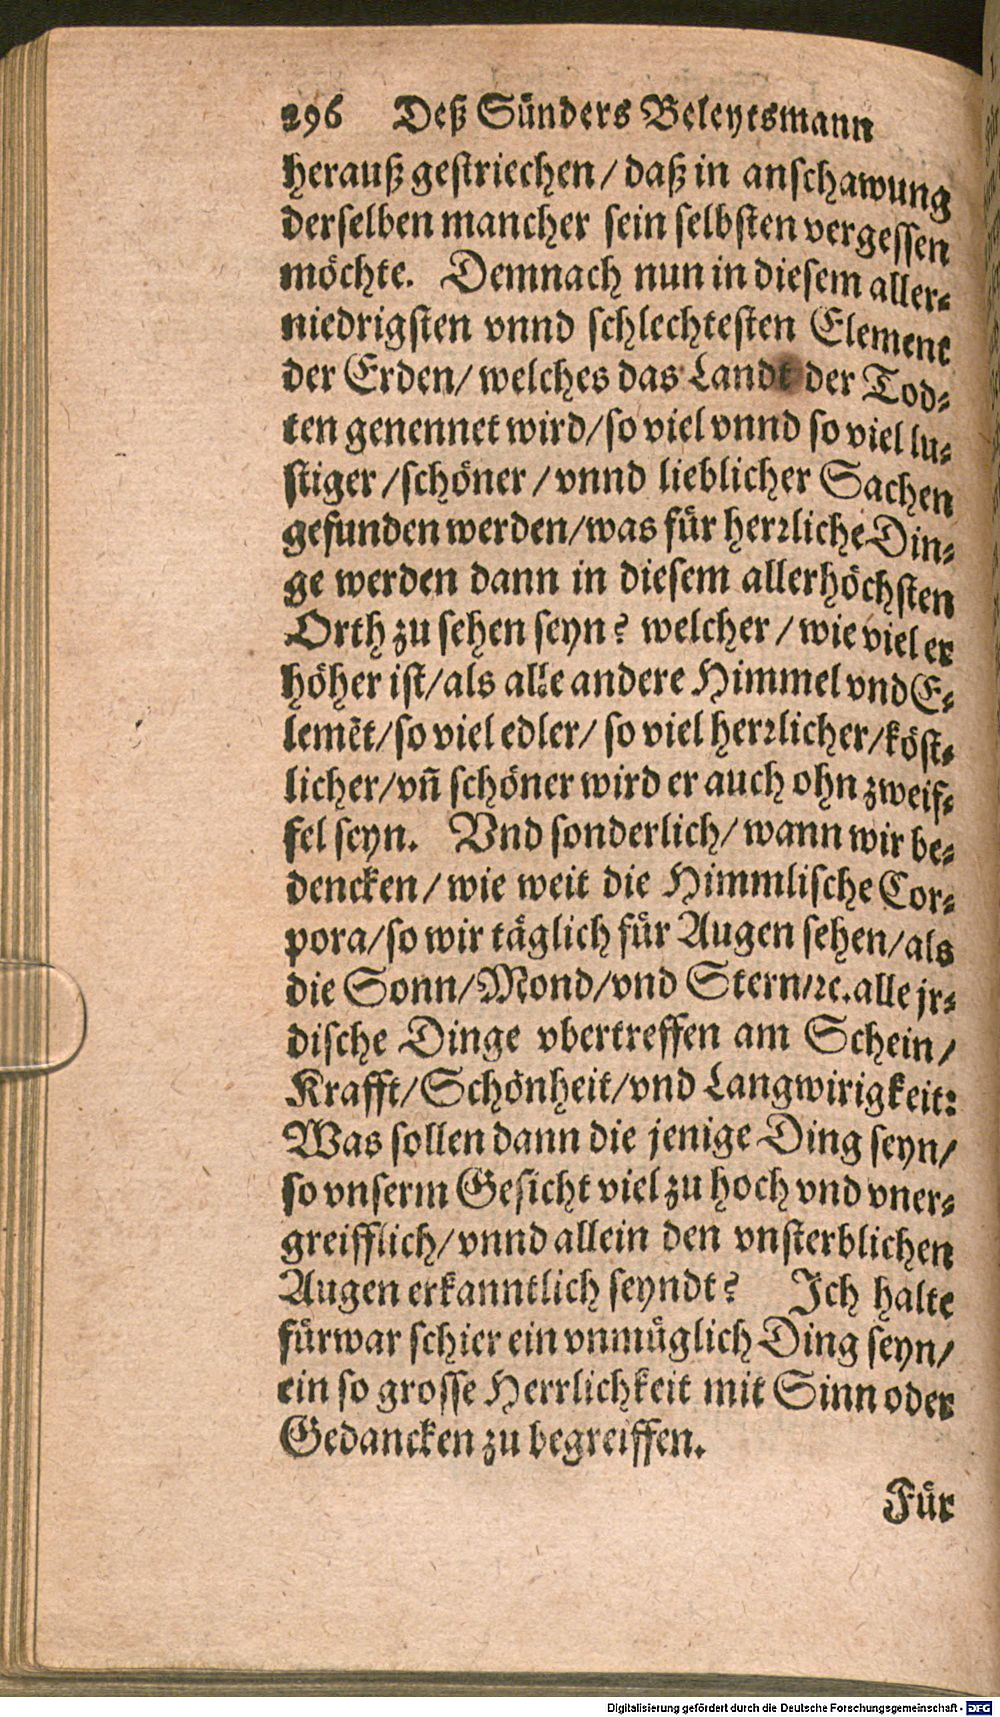 296 Deß Sünders Beleytsmann
herauß gestriechen / daß in anschawung
derselben mancher sein selbsten vergessen
möchte. Demnach nun in diesem aller-
niedrigsten vnnd schlechtesten Element
der Erden / welches das Landt der Tod-
ten genennet wird / so viel vnnd so viel lu-
stiger / schöner / vnnd lieblicher Sachen
gefunden werden / was für herrliche Din-
ge werden dann in diesem allerhöchsten
Orth zu sehen seyn? welcher / wie viel er
höher ist / als alle andere Himmel vnd E-
lemēt / so viel edler / so viel herrlicher / köst-
licher / vñ schöner wird er auch ohn zweif-
fel seyn. Vnd sonderlich / wann wir be-
dencken / wie weit die Himmlische Cor-
pora / so wir täglich für Augen sehen / als
die Sonn / Mond / vnd Stern / ꝛc. alle jr-
dische Dinge vbertreffen am Schein /
Krafft / Schönheit / vnd Langwirigkeit:
Was sollen dann die jenige Ding seyn /
so vnserm Gesicht viel zu hoch vnd vner-
greifflich / vnnd allein den vnsterblichen
Augen erkanntlich seyndt? Ich halte
fürwar schier ein vnmüglich Ding seyn /
ein so grosse Herrlichkeit mit Sinn oder
Gedancken zu begreiffen.
Für
Digitalisierung gefördert durch die Deutsche Forschungsgemeinschaft - DFG